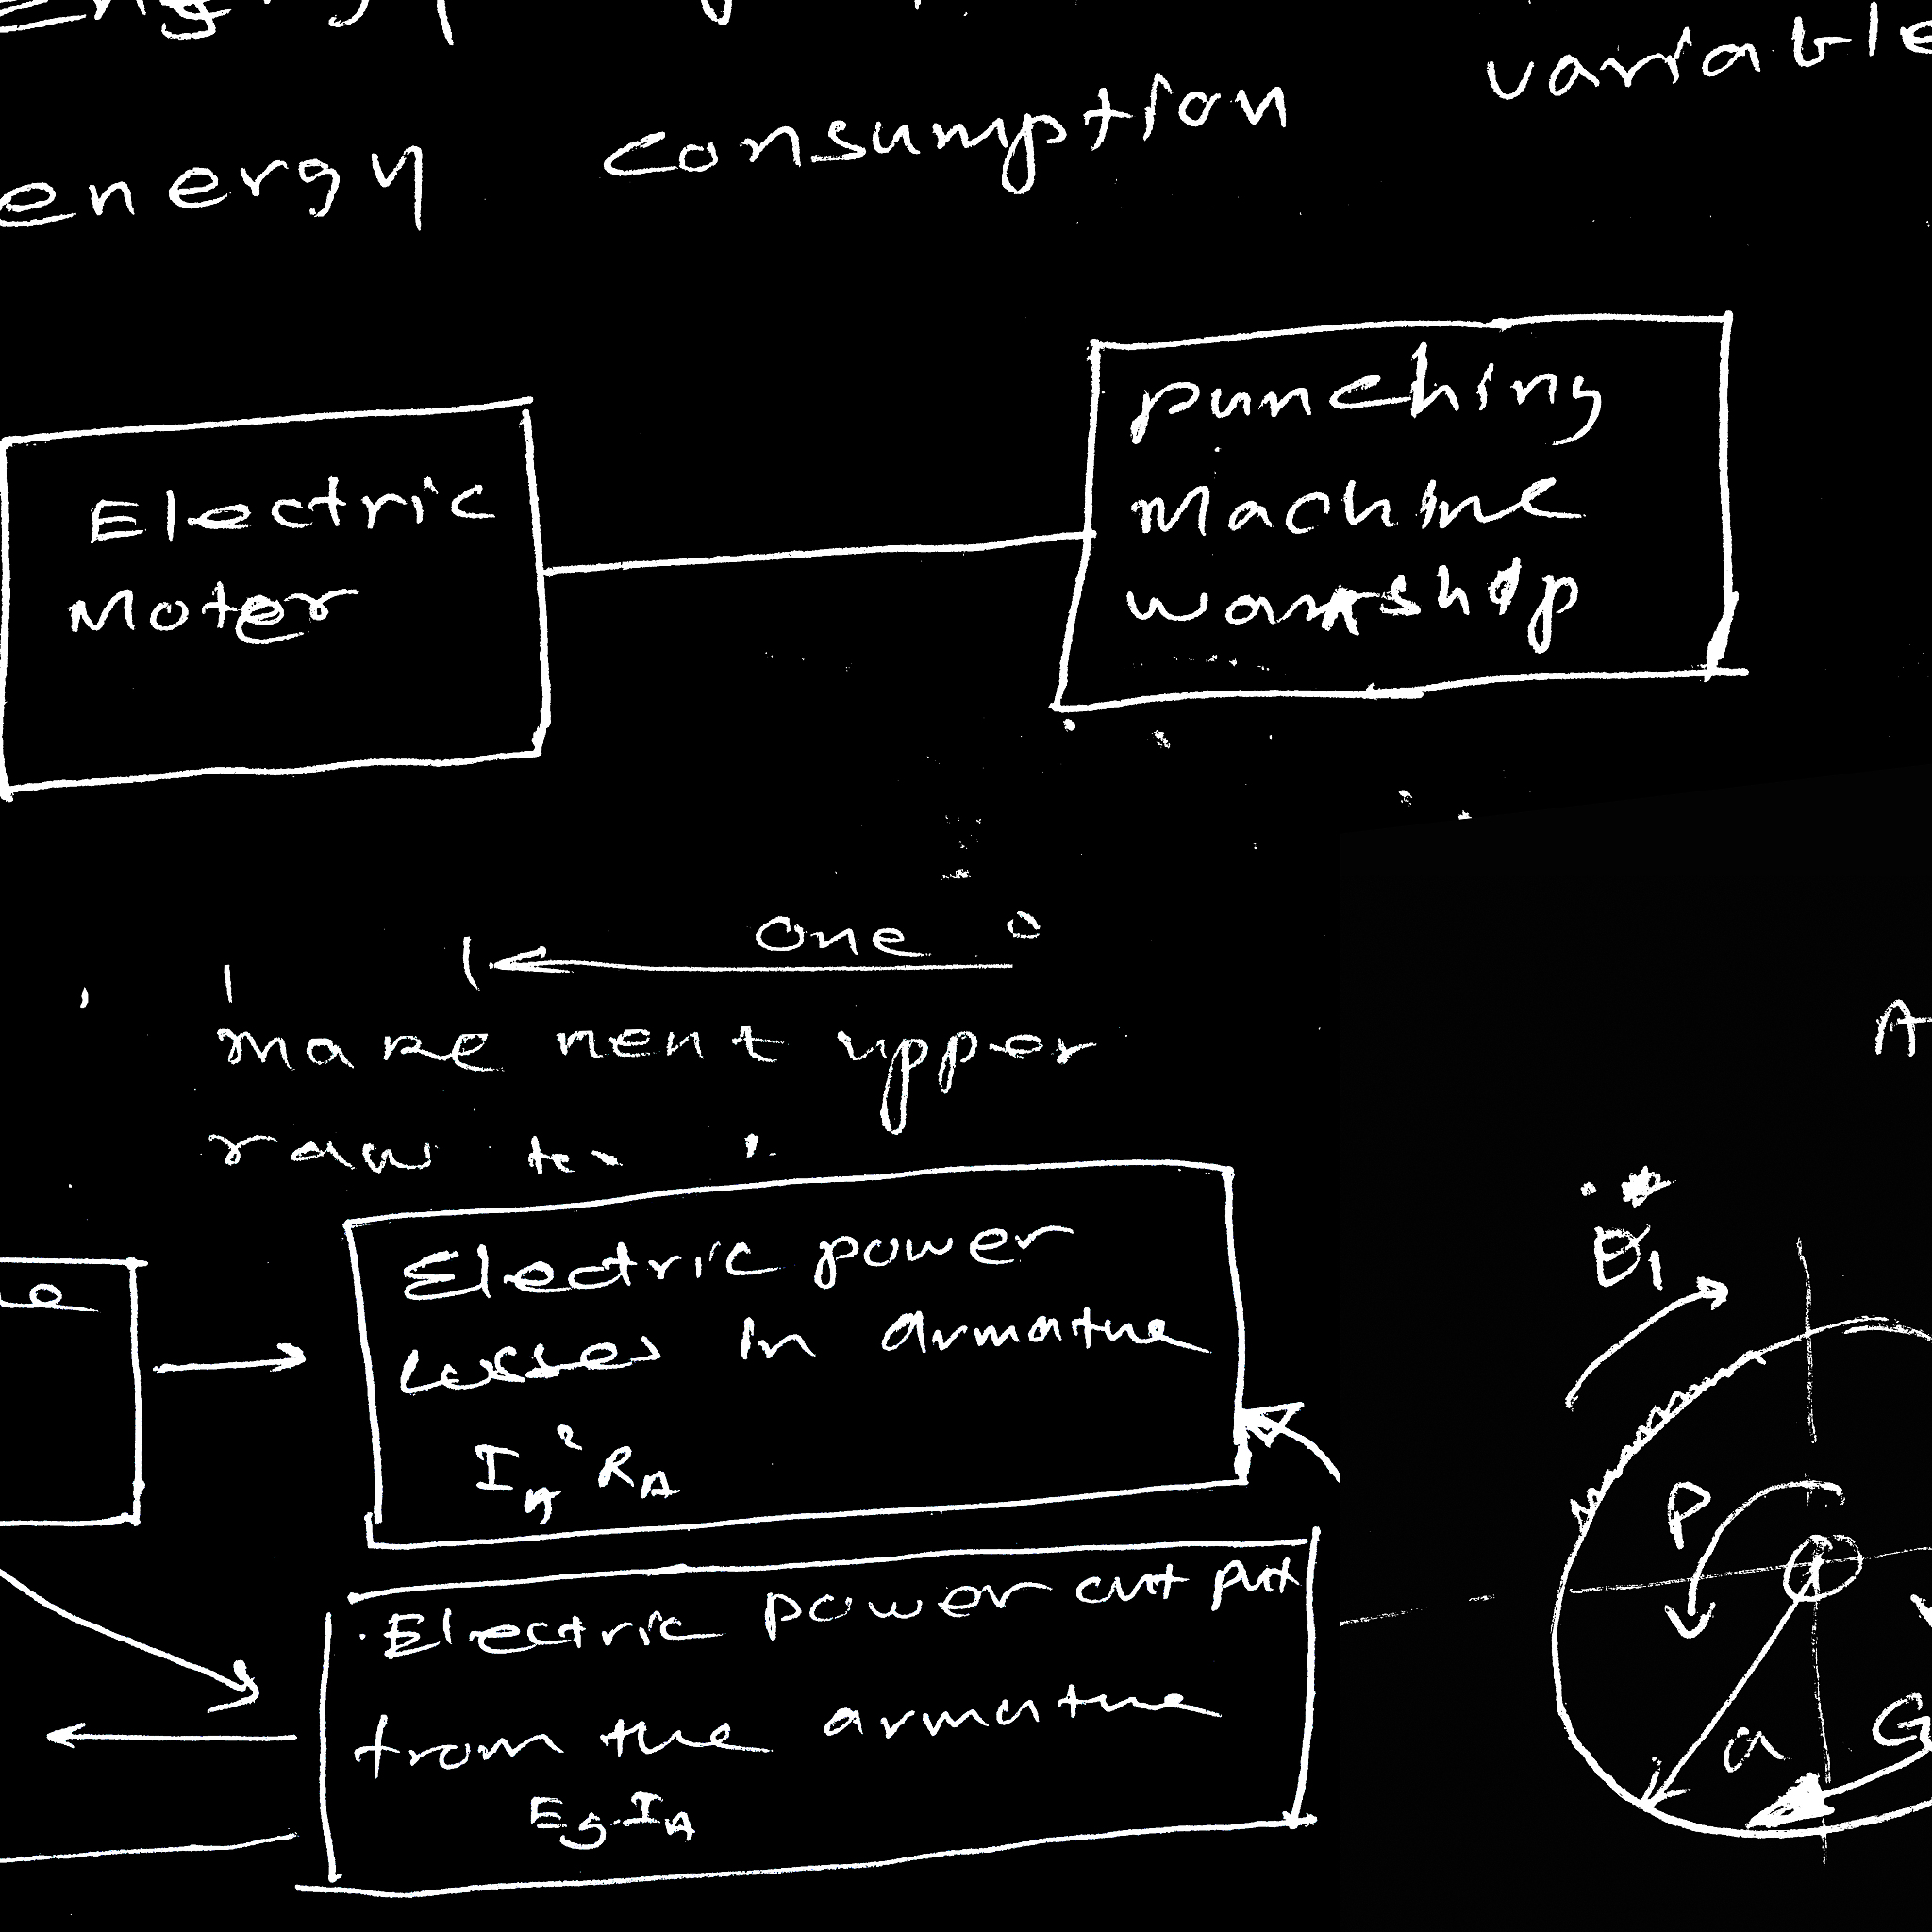 variable
energy consumption
Electric
Moter
punching
Machine
workshop
One
make nent upper
raw
Electric power
losses in armature
I_A²R_A
Electric power out put
from the armature
EgI_A
A
θ₁
P
a
G